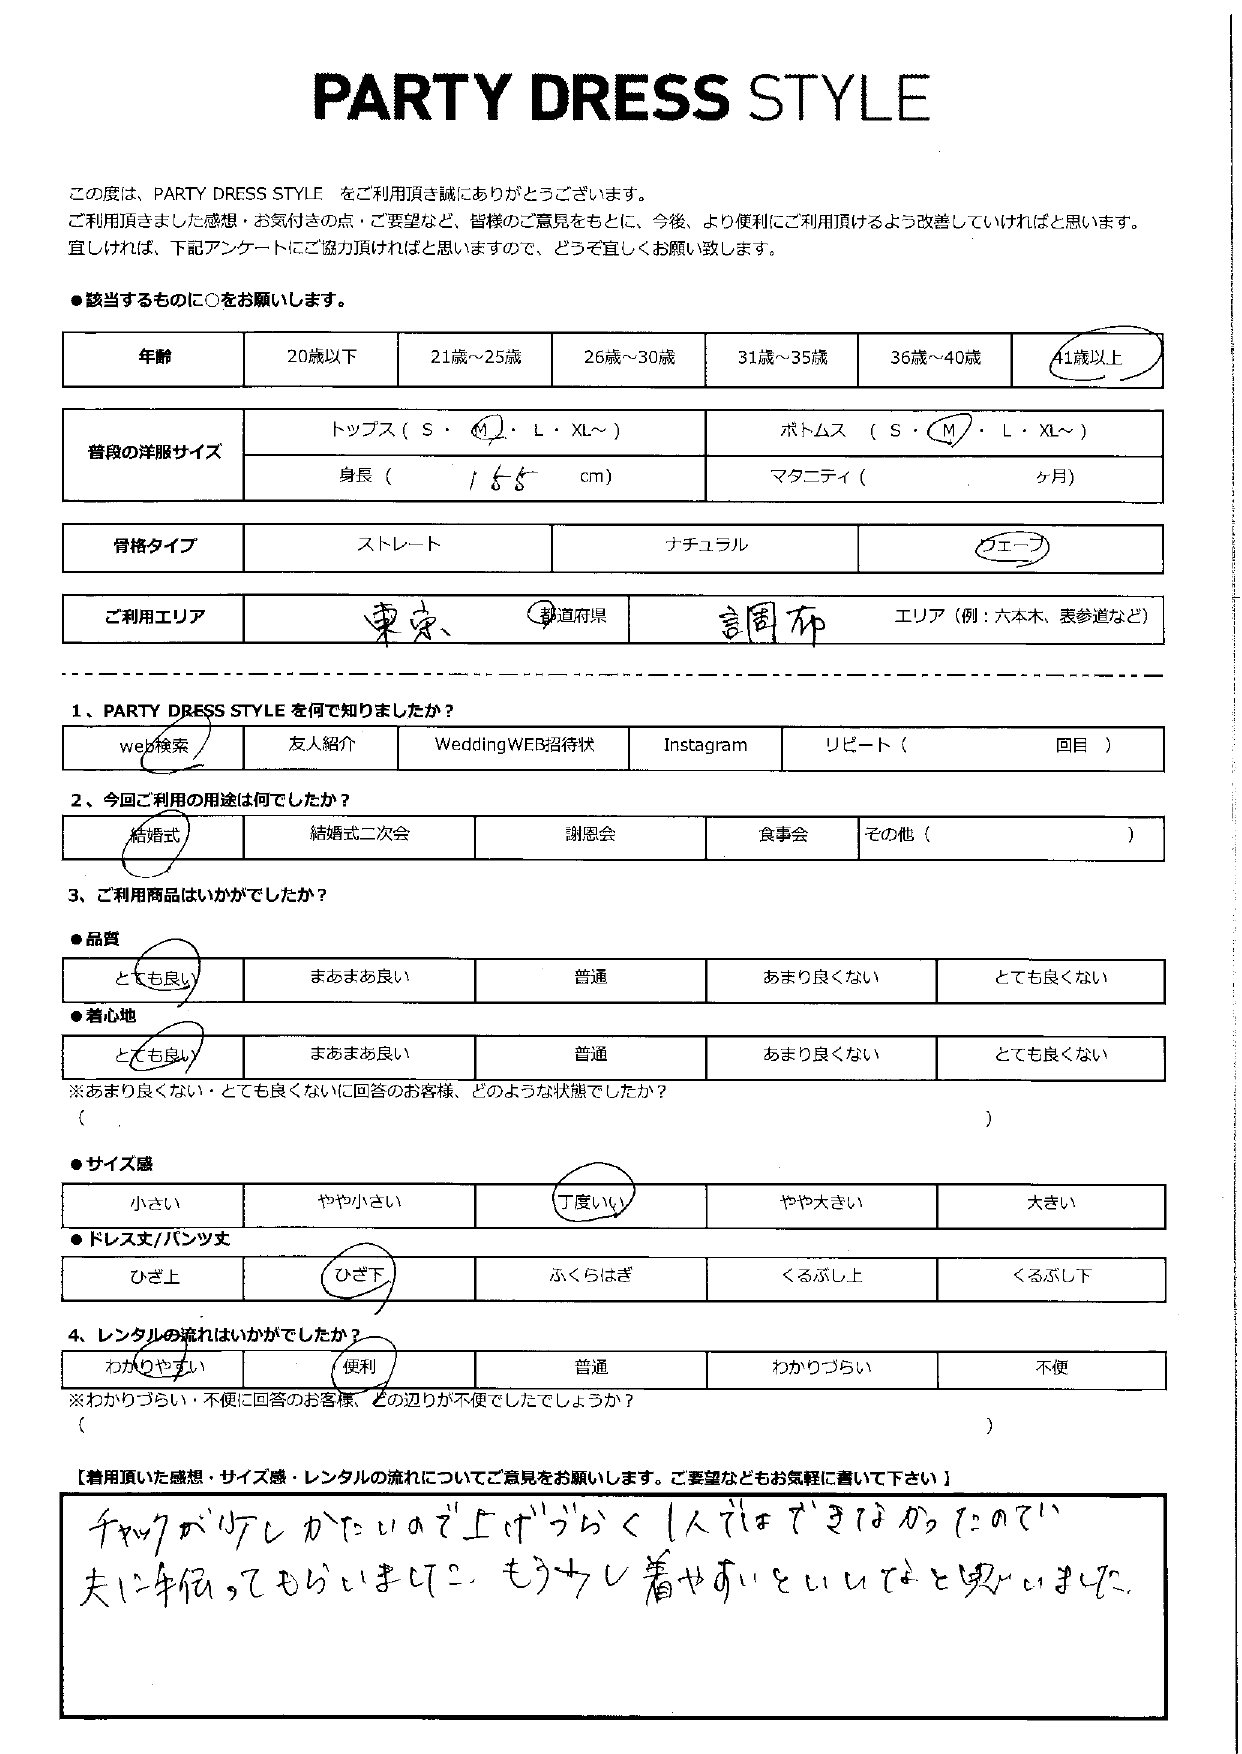 PARTY DRESS STYLE
この度は、PARTY DRESS STYLE をご利用頂き誠にありがとうございます。
ご利用頂きました感想・お気付きの点・ご要望など、皆様のご意見をもとに、今後、より便利にご利用頂けるよう改善していければと思います。
宜しければ、下記アンケートにご協力頂ければと思いますので、どうぞ宜しくお願い致します。
●該当するものに○をお願いします。
年齢 20歳以下 21歳～25歳 26歳～30歳 31歳～35歳 36歳～40歳 41歳以上
普段の洋服サイズ トップス ( S ・ M ・ L ・ XL～ ) ボトムス ( S ・ M ・ L ・ XL～ )
身長 ( 155 cm) マタニティ ( ヶ月)
骨格タイプ ストレート ナチュラル ウェーブ
ご利用エリア 東京 都道府県 調布 エリア（例：六本木、表参道など）
1、PARTY DRESS STYLE を何で知りましたか？
web検索 友人紹介 WeddingWEB招待状 Instagram リピート ( 回目 )
2、今回ご利用の用途は何でしたか？
結婚式 結婚式二次会 謝恩会 食事会 その他 ( )
3、ご利用商品はいかがでしたか？
●品質
とても良い まあまあ良い 普通 あまり良くない とても良くない
●着心地
とても良い まあまあ良い 普通 あまり良くない とても良くない
※あまり良くない・とても良くないに回答のお客様、どのような状態でしたか？
( )
●サイズ感
小さい やや小さい 丁度いい やや大きい 大きい
●ドレス丈/パンツ丈
ひざ上 ひざ下 ふくらはぎ くるぶし上 くるぶし下
4、レンタルの流れはいかがでしたか？
わかりやすい 便利 普通 わかりづらい 不便
※わかりづらい・不便に回答のお客様、どの辺りが不便でしたでしょうか？
( )
【着用頂いた感想・サイズ感・レンタルの流れについてご意見をお願いします。ご要望などもお気軽に書いて下さい】
チャックが少しかたいので上げづらく1人ではできなかったので
夫に手伝ってもらいました。もう少し着やすいといいなと思いました。